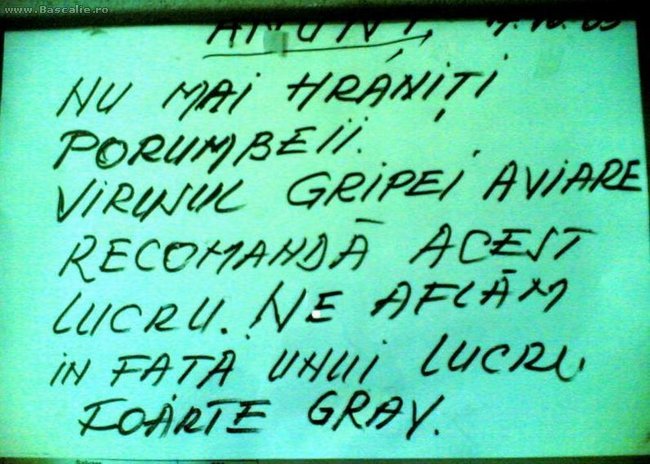 www.Bascalie.ro
ANUNȚ
NU MAI HRĂNIȚI
PORUMBEII.
VIRUSUL GRIPEI AVIARE
RECOMANDĂ ACEST
LUCRU. NE AFLĂM
IN FATA UNUI LUCRU
FOARTE GRAV.